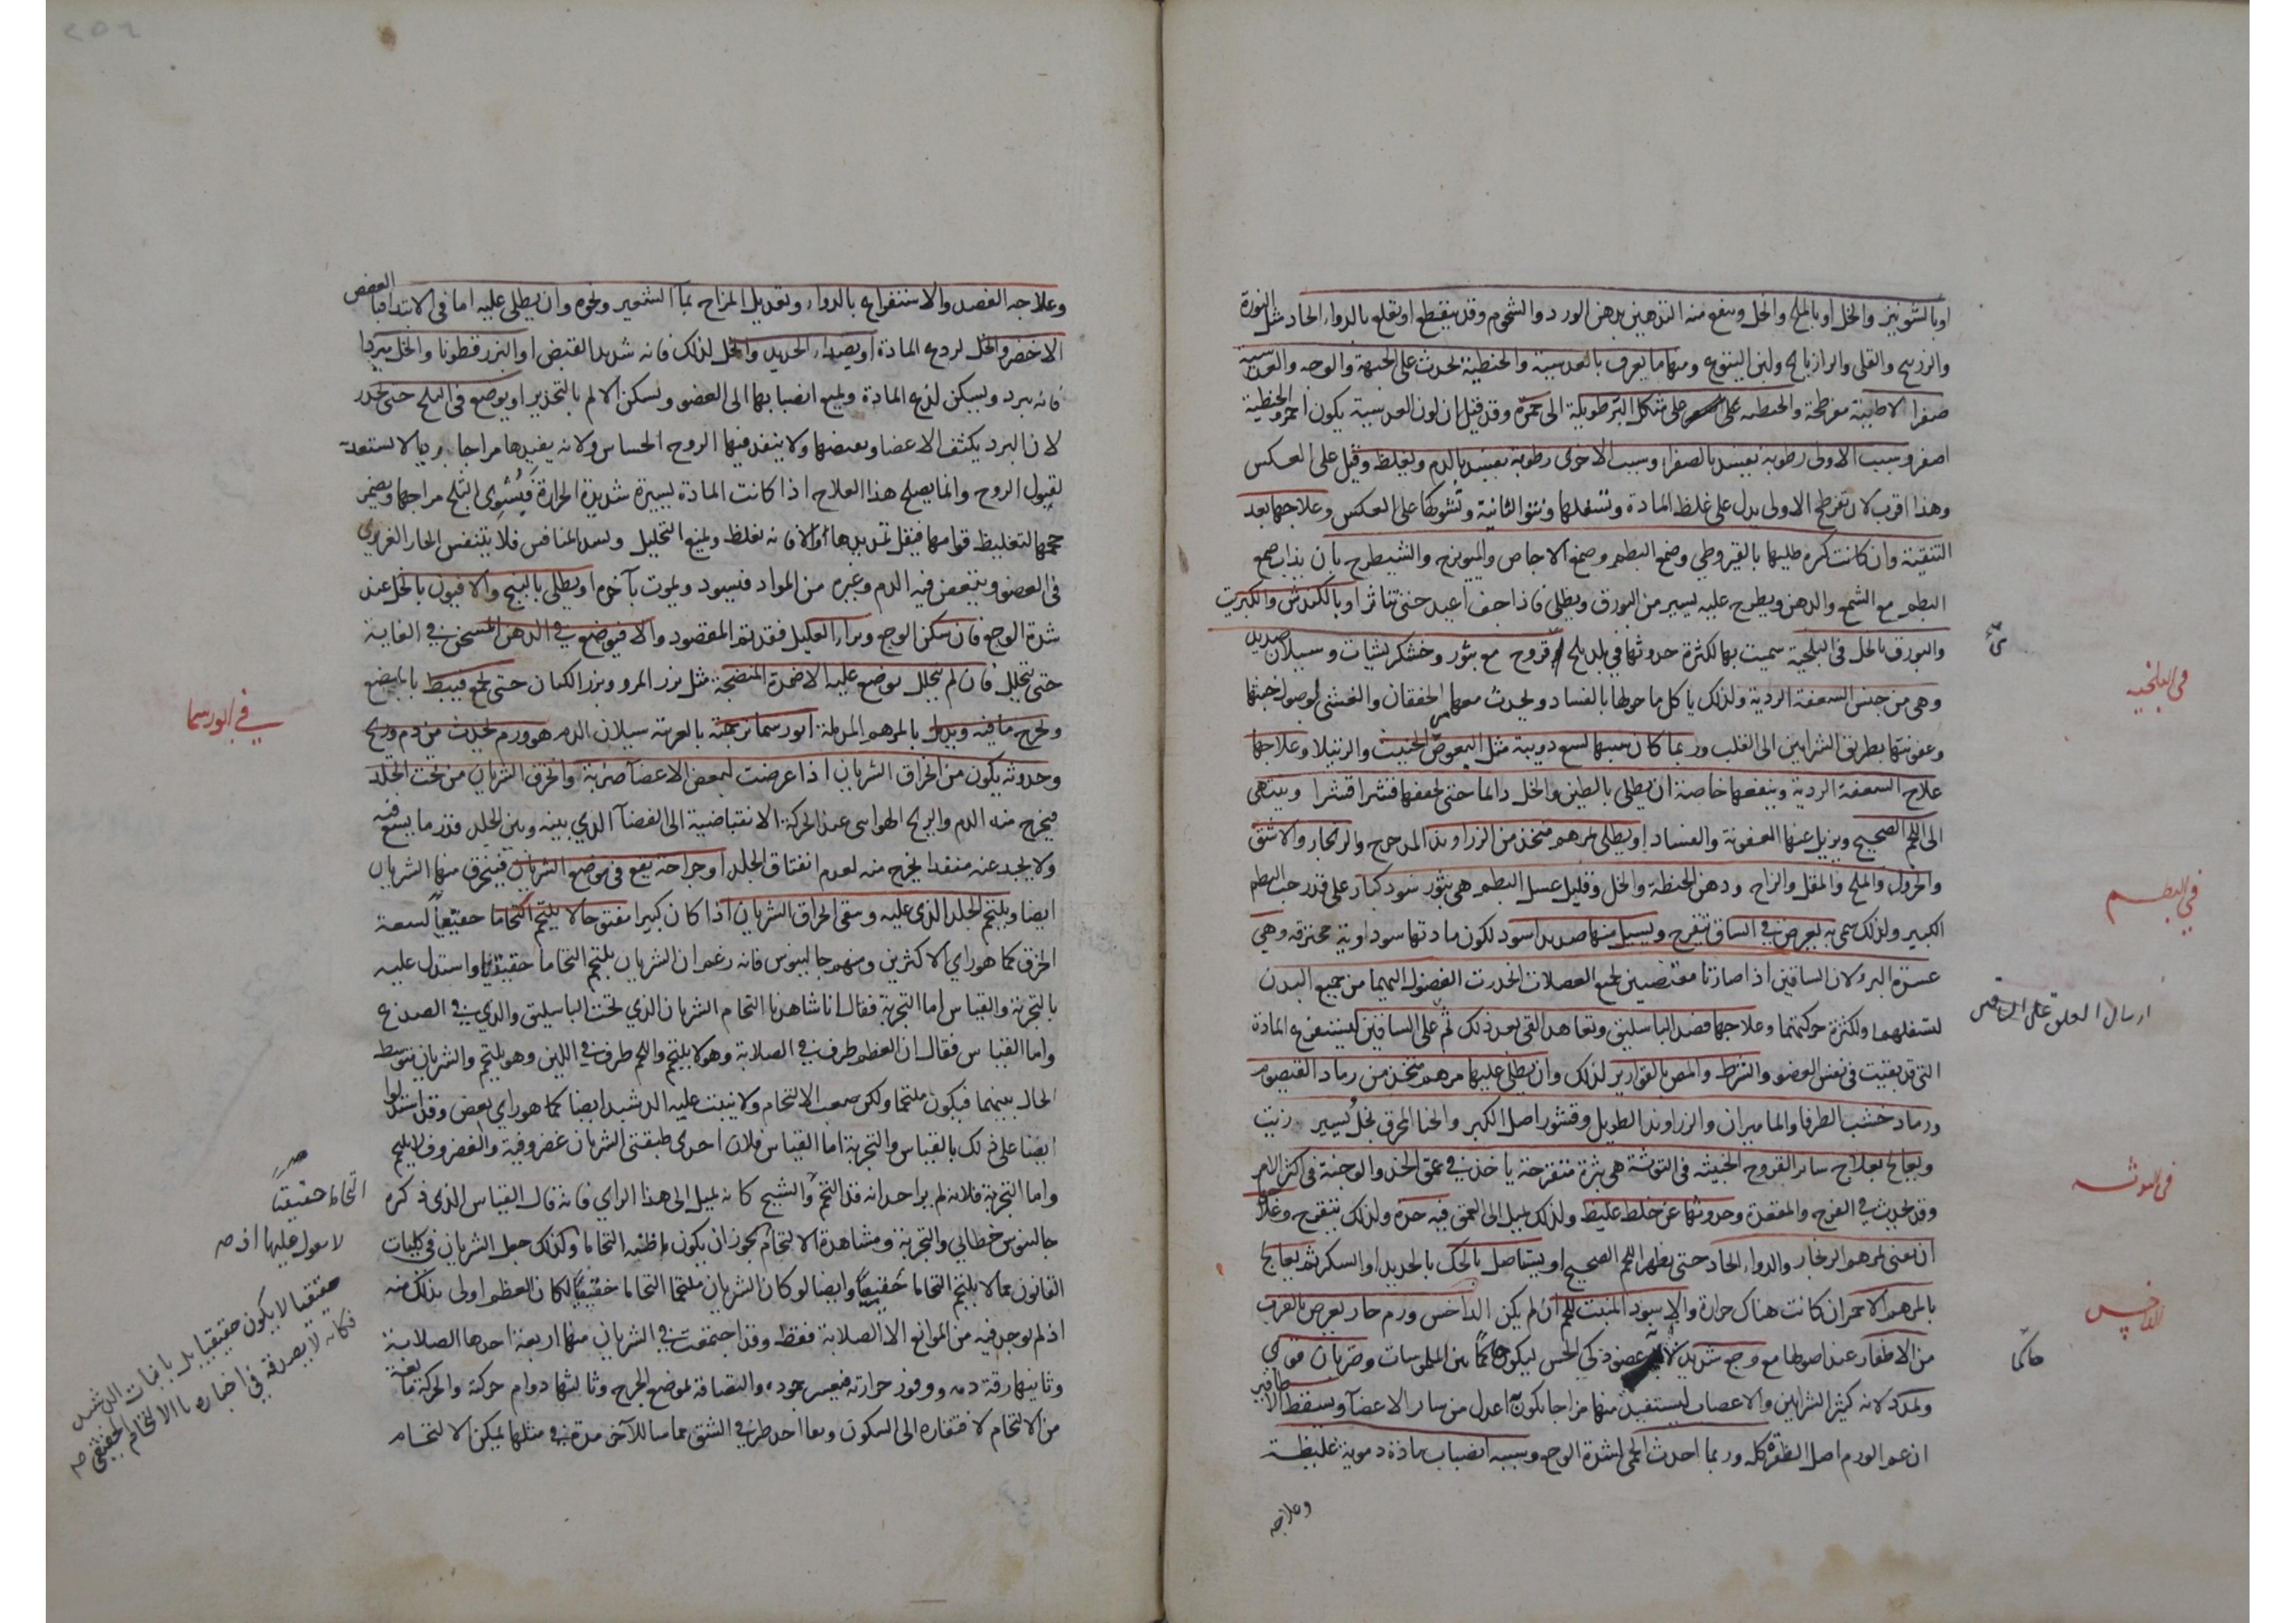 او بالشونيز والخل او بالملح والخل وينفع منه التدهين بدهن الورد والشحوم وقد يقطع او يقلع بالدواء الحاد مثل النورة
والزرنيخ والقلي والرازيانج ولبن اليتوع ومنها ما يعرف بالعدسية والحنطية تحدث على الجبهة والوجه والعدسية
صفرا لاطيئة مفرطحة والحنطية على شكل البر طويلة الى حمرة وقد قيل ان لون العدسية يكون احمر والحنطية
اصفر وسبب الاولى رطوبة تفسد بالصفرا وسبب الاخرى رطوبة تفسد بالدم ويغلظ وقيل على العكس
وهذا اقرب لان تفرطح الاولى يدل على غلظ المادة وتسفلها ونتوا الثانية وتشوكها على العكس وعلاجها بعد
التنقية وان كانت كره طليها بالقيروطي وصمغ البطم وصمغ الاجاص والميويزج والشيطرج بان يذاب صمغ
البطم مع الشمع والدهن ويطرح عليه يسير من البورق ويطلى فاذا جف اعيد حتى تتناثر او بالكندش والكبريت
والبورق بالخل في البلخية سميت بها لكثرة حدوثها في بلد بلخ قروح مع بثور وخشكريشات وسيلان صديد
وهي من جنس السعفة الردية ولذلك يأكل ما حولها بالفساد ويحدث معها الخفقان والغشي لوصول خبثها
وعفونتها بطريق الشرايين الى القلب وربما كان سببها لسع دويبة مثل البعوض الخبيث والرتيلا وعلاجها
علاج السعفة الردية وينفعها خاصة ان يطلى بالطين والخل دائما حتى يجففها فتقشر اقتشرا وينتهي
الى اللحم الصحيح ويزيل عنها العفونة والفساد او يطلى بمرهم متخذ من الزراوند المدحرج والزنجار والاشق
والخردل والملح والمقل والزاج ودهن الحنطة والخل وقليل عسل البطم هي بثور سود كبار على قدر حب البطم
الكبير ولذلك سمي به يعرض في الساق يتقرح ويسيل منها صديد اسود لكون مادتها سوداوية محترقة وهي
عسرة البرء لان الساقين اذا صارتا مقتضيين لجمع العضلات انحدرت الفضول اليهما من جميع البدن
لتسفلهما ولكثرة حركتهما وعلاجها فصد الباسليق وتعاهد القي بعد ذلك ثم على الساقين ليستفرغ المادة
التي قد بقيت في نفس العضو والشرط والمص بالقوارير لذلك وان يطلى عليها مرهم متخذ من رماد القيصوم
ورماد خشب الطرفا والماميران والزراوند الطويل وقشور اصل الكبر والحنا المحرق بخل يسير زيت
ويعالج بعلاج سائر القروح الخبيثة في التوثة هي بثرة متقرحة يأخذ في عمق الخد والوجنة في اكثر الامر
وقد يحدث في الفرج والمقعدة وحدوثها عن خلط غليظ ولذلك يميل الى العمق فيه حدة ولذلك يتقرح وعلاجه
ان يفنى بمرهم الزنجار والدواء الحاد حتى يظهر اللحم الصحيح او يستأصل بالحك بالحديد او السكر ثم يعالج
بالمرهم الاحمر ان كانت هناك حرارة والاسود المنبت للحم ان لم يكن الداخس ورم حار يعرض بالقرب
من الاظفار عند اصولها مع وجع شديد عضو ذكي الحس ليكون حاكما بين الملموسات وضربان قوي
وتمدد لانه كثير الشرايين والاعصاب ليستفيد منها مزاجا يكون اعدل من سائر الاعضا ويسقط الاظافير
ان عم الورم اصل الظفر كله وربما احدث الحمى لشدة الوجع وسببه انصباب مادة دموية غليظة
وعلاجه
في البلخية
في البطم
ارسال العلق على الساقين
في التوثه
الداخس
حاكما
وعلاجه الفصد والاستفراغ بالدواء وتعديل المزاج بماء الشعير ونحوه وان يطلى عليه اما في الابتدا فبالعفص
الاخضر والخل لردع المادة او بصداء الحديد والخل لذلك فانه شديد القبض او البزرقطونا والخل مبردا
فانه يبرد ويسكن لذع المادة ويمنع انصبابها الى العضو ويسكن الالم بالتخدير او يوضع في الثلج حتى يخدر
لان البرد يكثف الاعضا ويقبضها ولا ينفذ فيها الروح الحساس ولانه يفيدها مزاجا رديا لا تستعد به
لقبول الروح وانما يصلح هذا العلاج اذا كانت المادة يسيرة شديدة الحرارة فيستوي الثلج مزاجها ويضمر
حجمها لتغليظ قوامها فيقل تمديدها والا فانه يغلظ ويمنع التحليل ويسد المنافس فلا يتنفس الحار الغريزي
في العضو ويتعفن فيه الدم وغيره من المواد فيسود ويموت بآخره او يطلى بالبنج والافيون بالخل عند
شدة الوجع فان سكن الوجع وبراء العليل فقد تم المقصود والا فيوضع في الدهن المسخن في الغاية
حتى يتحلل فان لم يتحلل يوضع عليه الاضمدة المنضجة مثل بزر المرو وبزر الكتان حتى يجمع فيبط بالمبضع
ويخرج ما فيه ويدمل بالمرهم المدملة ابورسما ترجمته بالعربية سيلان الدم هو ورم يحدث من دم وريح
وحدوثه يكون من انخراق الشريان اذا عرضت لبعض الاعضا ضربة وانخرق الشريان من تحت الجلد
فيخرج منه الدم والريح الهوائي عند الحركة الانقباضية الى الفضا الذي بينه وبين الجلد قدر ما يسع فيه
ولا يجد عنه منفذا يخرج منه لعدم انفتاق الجلد او جراحة يقع في موضع الشريان فينخرق منها الشريان
ايضا ويلتحم الجلد الذي عليه ويبقى انخراق الشريان اذا كان كبيرا مفتوحا لا يلتحم التحاما حقيقيا لسعة
الخرق كما هو راي الاكثرين ومنهم جالينوس فانه زعم ان الشريان يلتحم التحاما حقيقيا واستدل عليه
بالتجربة والقياس اما التجربة فقال انا شاهدنا التحام الشريان الذي تحت الباسليق والذي في الصدغ
واما القياس فقال ان العظم طرف في الصلابة وهو لا يلتحم واللحم طرف في اللين وهو يلتحم والشريان متوسط
الحال بينهما فيكون ملتحما ولكن صعب الالتحام ولا ينبت عليه الدشبد ايضا كما هو راي بعض وقد استدلوا
ايضا على ذلك بالقياس والتجربة اما القياس فلان احدى طبقتي الشريان غضروفية والغضروف لا يلتحم
واما التجربة فلانه لم ير احد انه قد التحم والشيخ كانه يميل الى هذا الراي فانه قال القياس الذي ذكره
جالينوس خطابي والتجربة ومشاهدة الالتحام يجوز ان يكون ما ظنه التحاما وكذلك جعل الشريان في كليات
القانون مما لا يلتحم التحاما حقيقيا وايضا لو كان الشريان ملتحما التحاما حقيقيا لكان العظم اولى بذلك منه
اذ لم يوجد فيه من الموانع الا الصلابة فقط وقد اجتمعت في الشريان منها اربعة احدها الصلابة
وثانيها رقة دمه ووفور حرارته فيعسر جموده والتصاقه لموضع الجرح وثالثها دوام حركته والحركة مانعة
من الالتحام لافتقاره الى السكون وبقا احد طرفي الشق مماسا للآخر مدة في مثلها يمكن الالتحام
في ابورسما
التحاما حقيقيا
لا يعول عليها اذ
حقيقيا لا يكون حقيقيا بل بانبات الدشبد
فكانه لا يصدقه في اخباره بالالتحام الحقيقي